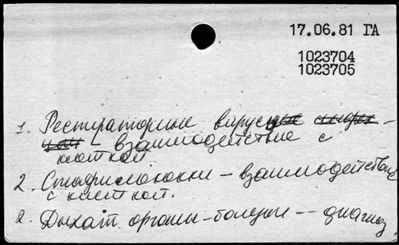 17.06.81 ГА
1023704
1023705
1. Респираторные вирусные
– взаимодействие с
клеткой.
2. Стафилококки – взаимодействие
с клеткой.
2. Дыхат. органы – болезни – диагноз